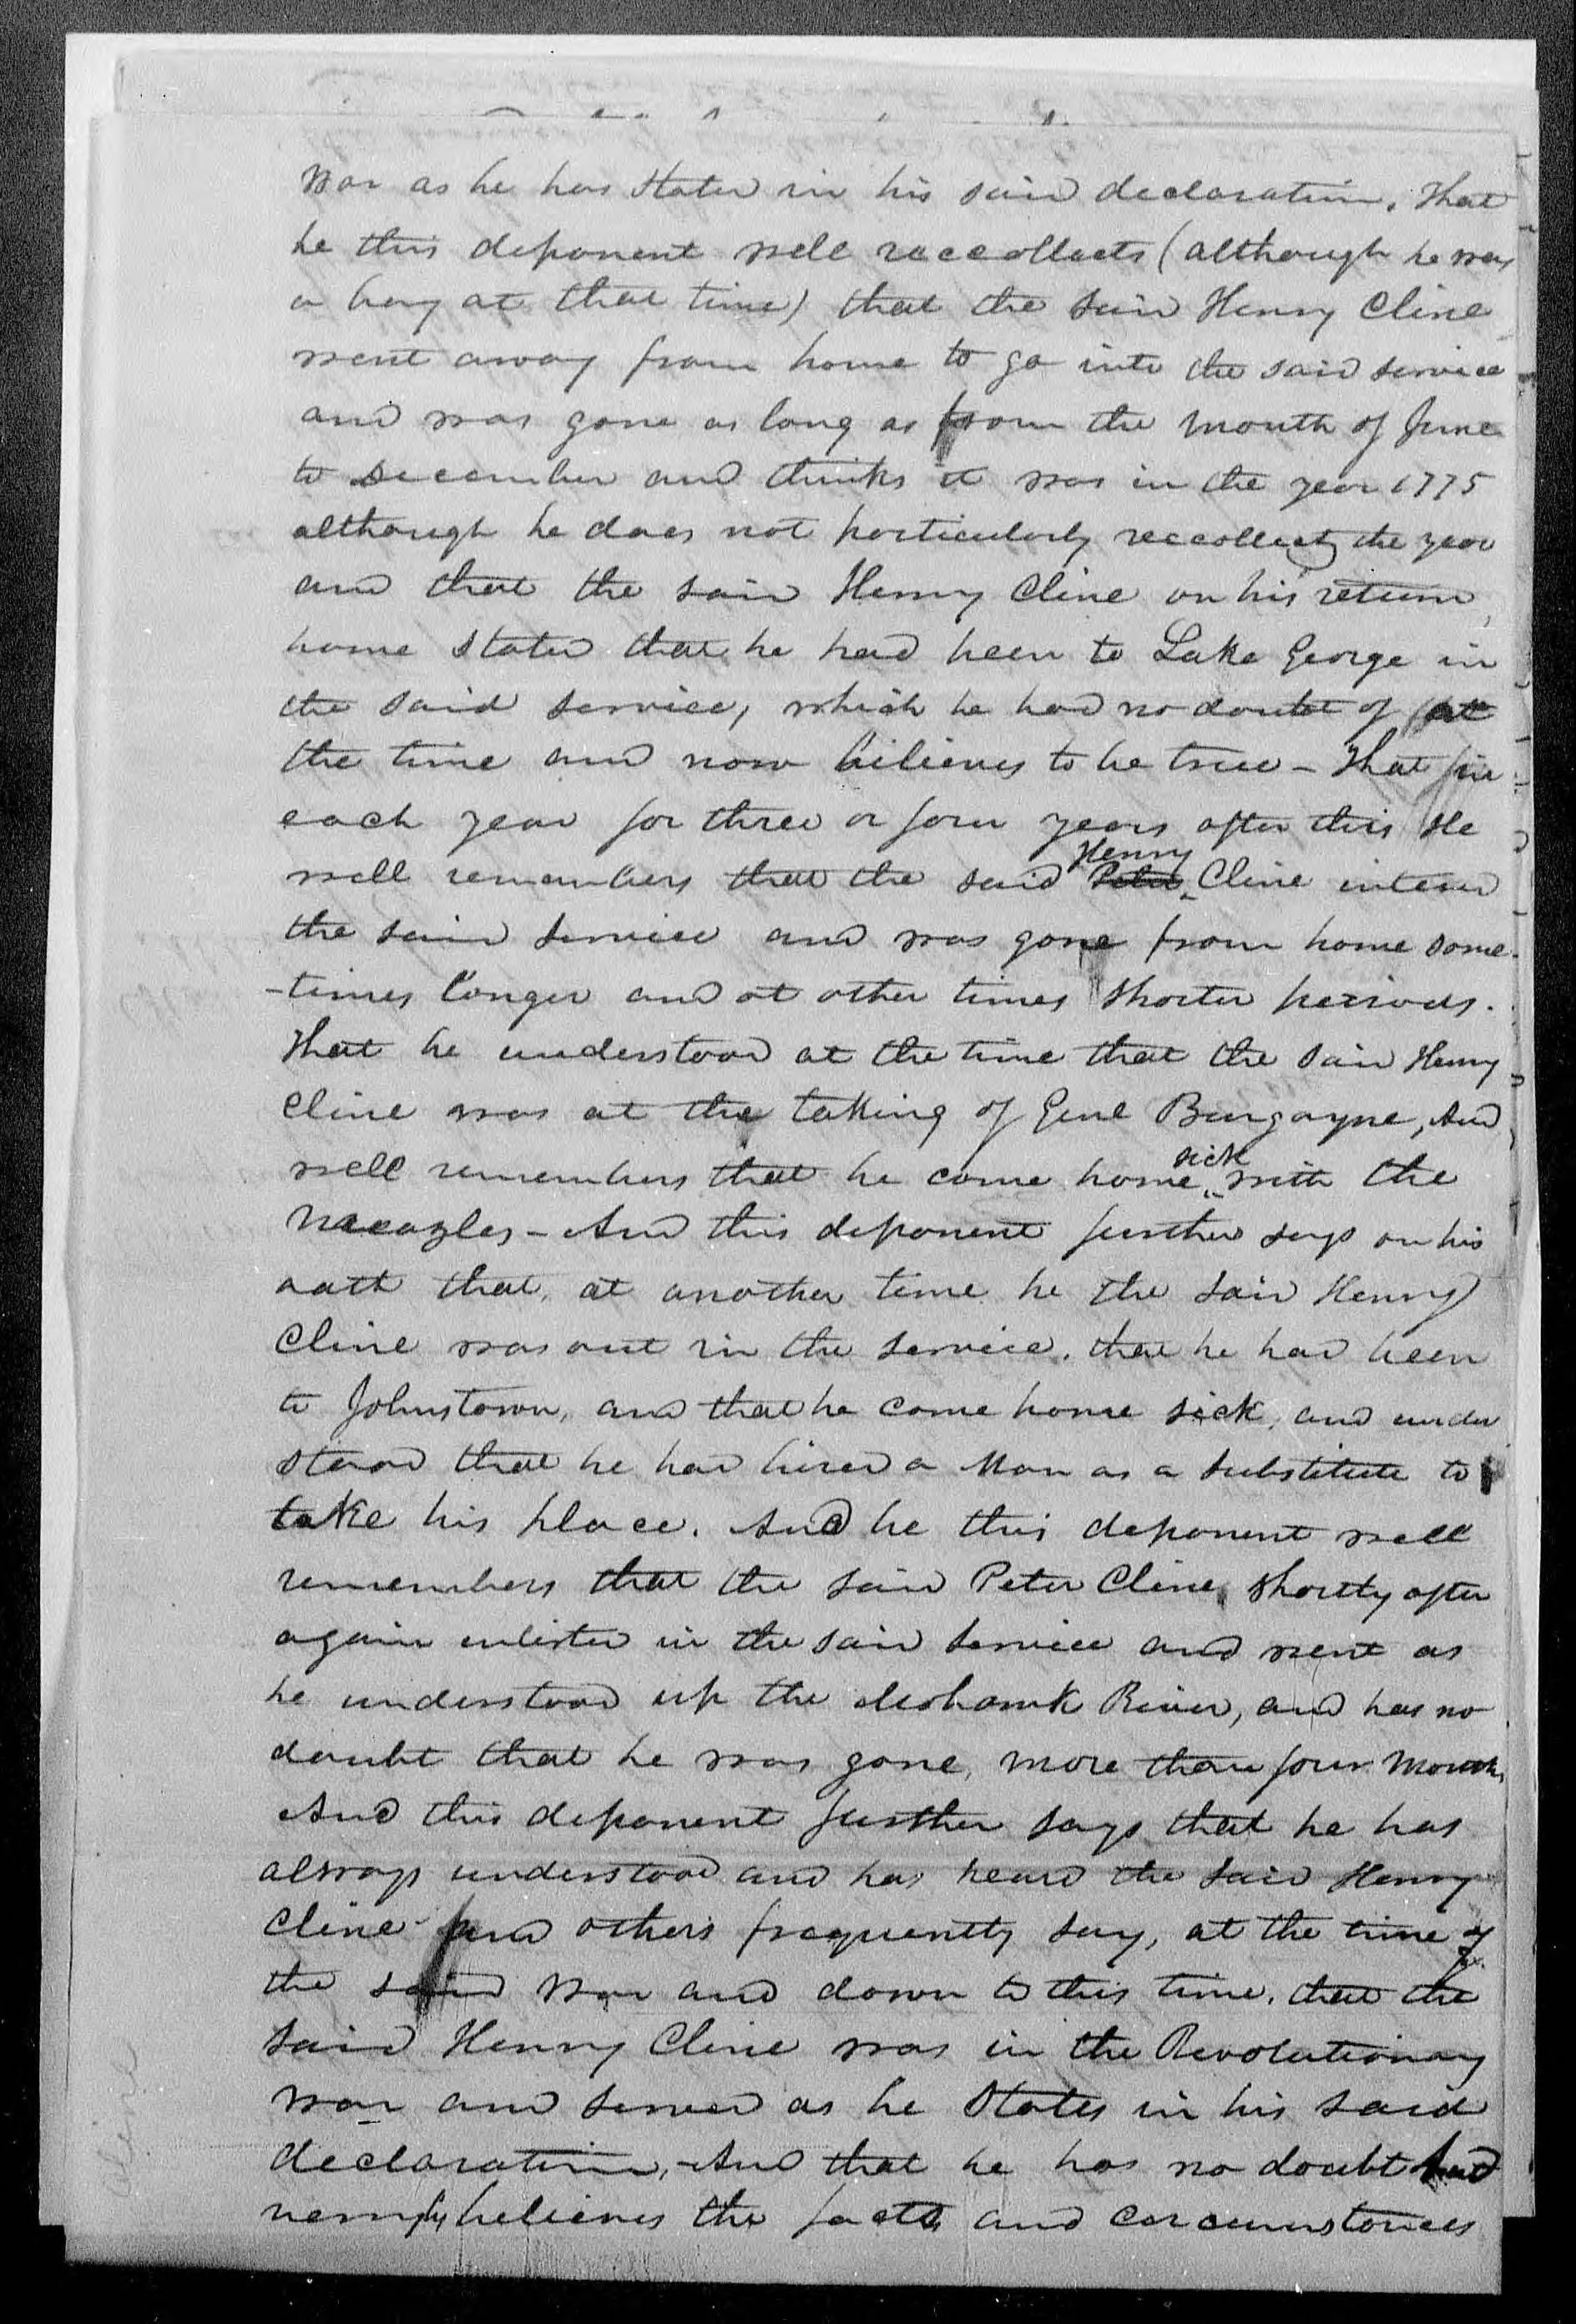 War as he has stated in his said declaration. That
he this deponent well reccollects (although he was
a boy at that time) that the said Henry Cline
went away from home to go into the said service
and was gone as long as from the Month of June
to December and thinks it was in the year 1775
although he does not particularly reccollect the year
and that the said Henry Cline on his return
home stated that he had been to Lake George in
the said service, which he had no doubt of at
the time and now bilieves to be true - That in
each year for three or four years after this He
well remembers that the said Peter Henry Cline intered
the said service and was gone from home some-
-times longer and at other times shorter periods.
That he understood at the time that the said Henry
Cline was at the taking of Genl Burgoyne, And
well remembers that he come home sick with the
Meazles - And this deponent further says on his
oath that, at another time he the said Henry
Cline was out in the service. that he had been
to Johnstown, and that he come home sick, and under
stood that he had hired a Man as a substitute to
take his place. And he this deponent well
remembers that the said Peter Cline shortly after
again enlisted in the said service and went as
he understood up the Mohawk River, and has no
doubt that he was gone, more than four Months
And this deponent further says that he has
always understood and has heard the said Henry
Cline and others frequently say, at the time of
the said War and down to this time, that the
said Henry Cline was in the Revolutionary
War and served as he States in his said
declaration, And that he has no doubt And
verryly believes the facts and carcumstances
Cline